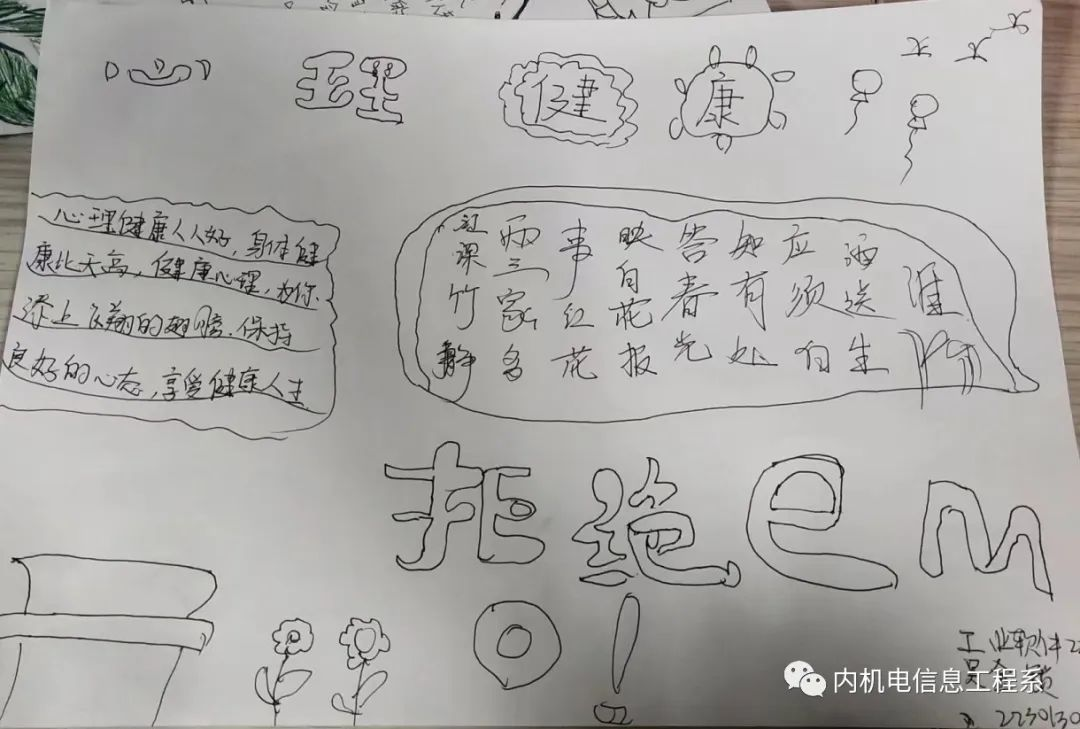 心理健康
心理健康人人好,身体健
康比天高,健康心理,为你
添上飞翔的翅膀.保持
良好的心态,享受健康人生
江深竹静
两三家多
事红花
映白花报
答春光
知有处
应须白
酒送生
涯
拒绝em
o!
工业软件22
2230130
内机电信息工程系